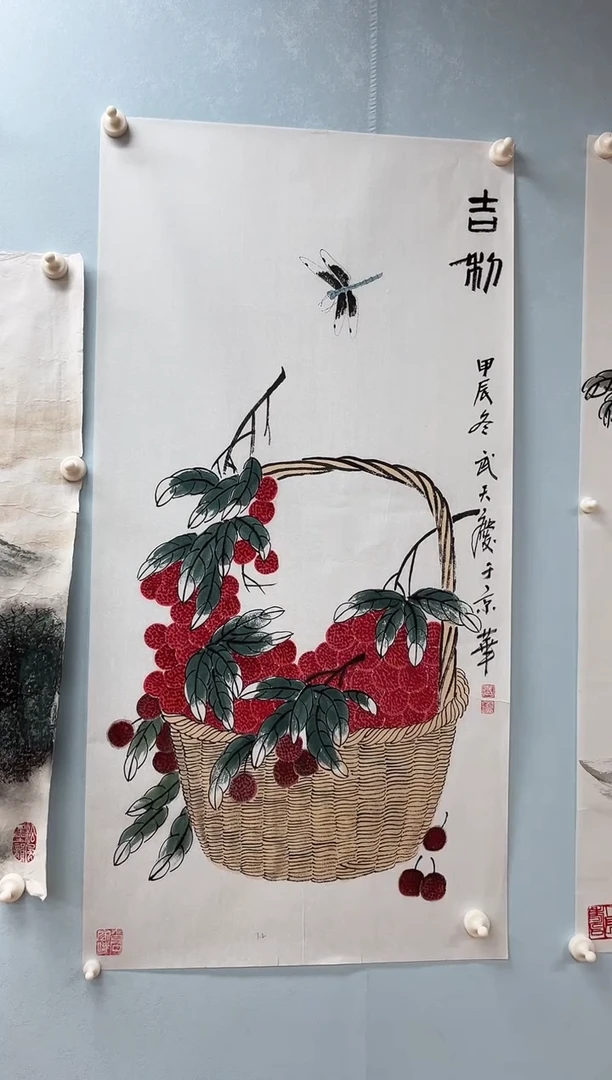 吉利
甲辰冬武天慶于京華